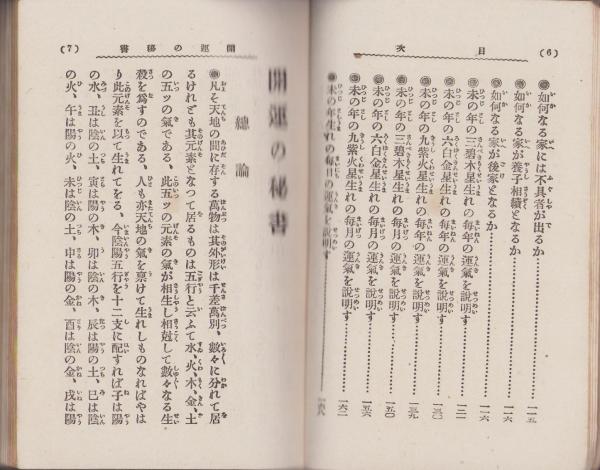 (6)
目次
◉如何なる家には不具者が出るか……一一五
◉如何なる家が養子相續となるか……一一六
◉如何なる家が後家となるか……一一六
◉未の年の三碧木星生れの每年の運氣を說明す……一二一
◉未の年の六白金星生れの每年の運氣を說明す……一三〇
◉未の年の九紫火星生れの每年の運氣を說明す……一三九
◉未の年の三碧木星生れの每月の運氣を說明す……一五〇
◉未の年の六白金星生れの每月の運氣を說明す……一五六
◉未の年の九紫火星生れの每月の運氣を說明す……一六二
◉未の年生れの每日の運氣を說明す……一六八
開運の秘書
(7)
開運の秘書
總論
◉凡そ天地の間に存する萬物は其外形は千差萬別、數々に分れて居
るけれども其元素となつて居るものは五行と云ふて水、火、木、金、土
の五ツの氣である、此五ツの元素の氣が相生し相尅して數々なる生
殺を爲すのである、人も亦天地の氣を禀けて生れしものなればやは
り此元素を以て生れてをる、今陰陽五行を十二支に配すれば子は陽
の水、丑は陰の土、寅は陽の木、卯は陰の木、辰は陽の土、巳は陰
の火、午は陽の火、未は陰の土、申は陽の金、酉は陰の金、戌は陽